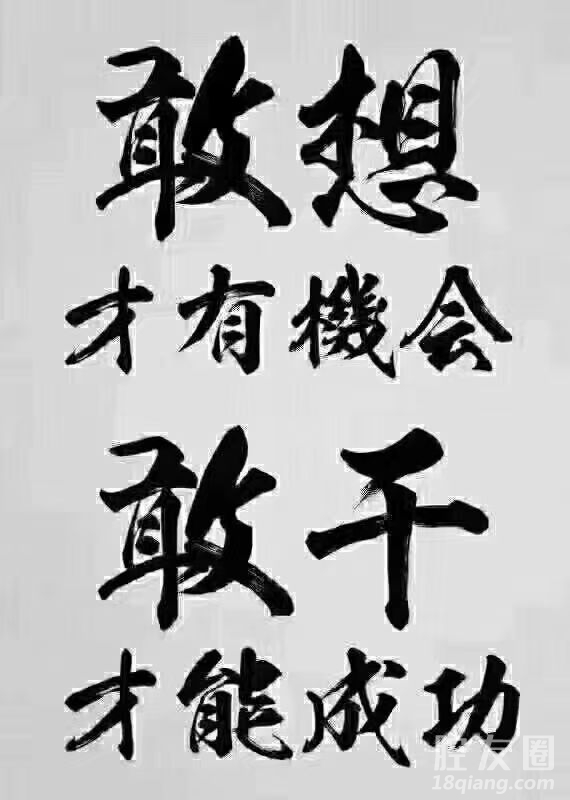 敢想
才有機会
敢干
才能成功
腔友圈
18qiang.com